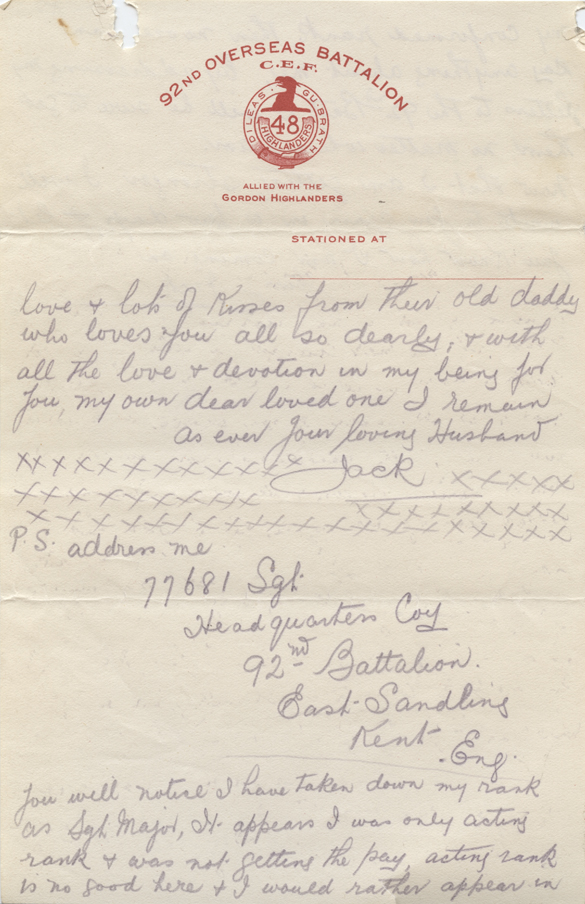 92ND OVERSEAS BATTALION
C.E.F.
DILEAS GU BRATH
48
HIGHLANDERS
ALLIED WITH THE
GORDON HIGHLANDERS
STATIONED AT
love & lots of Kisses from their old daddy
who loves you all so dearly, & with
all the love & devotion in my being for
you, my own dear loved one I remain
as ever your loving Husband
x x x x x x x x x x x x Jack x x x x x
x x x x x x x x x x x x x x x x x x x
x x x x x x x x x x x x x x x x x x x x x x
P.S. address me
77681 Sgt.
Headquarters Coy
92nd Battalion.
East Sandling
Kent.
Eng.
you will notice I have taken down my rank
as Sgt Major, It appears I was only acting
rank & was not getting the pay, acting rank
is no good here & I would rather appear in